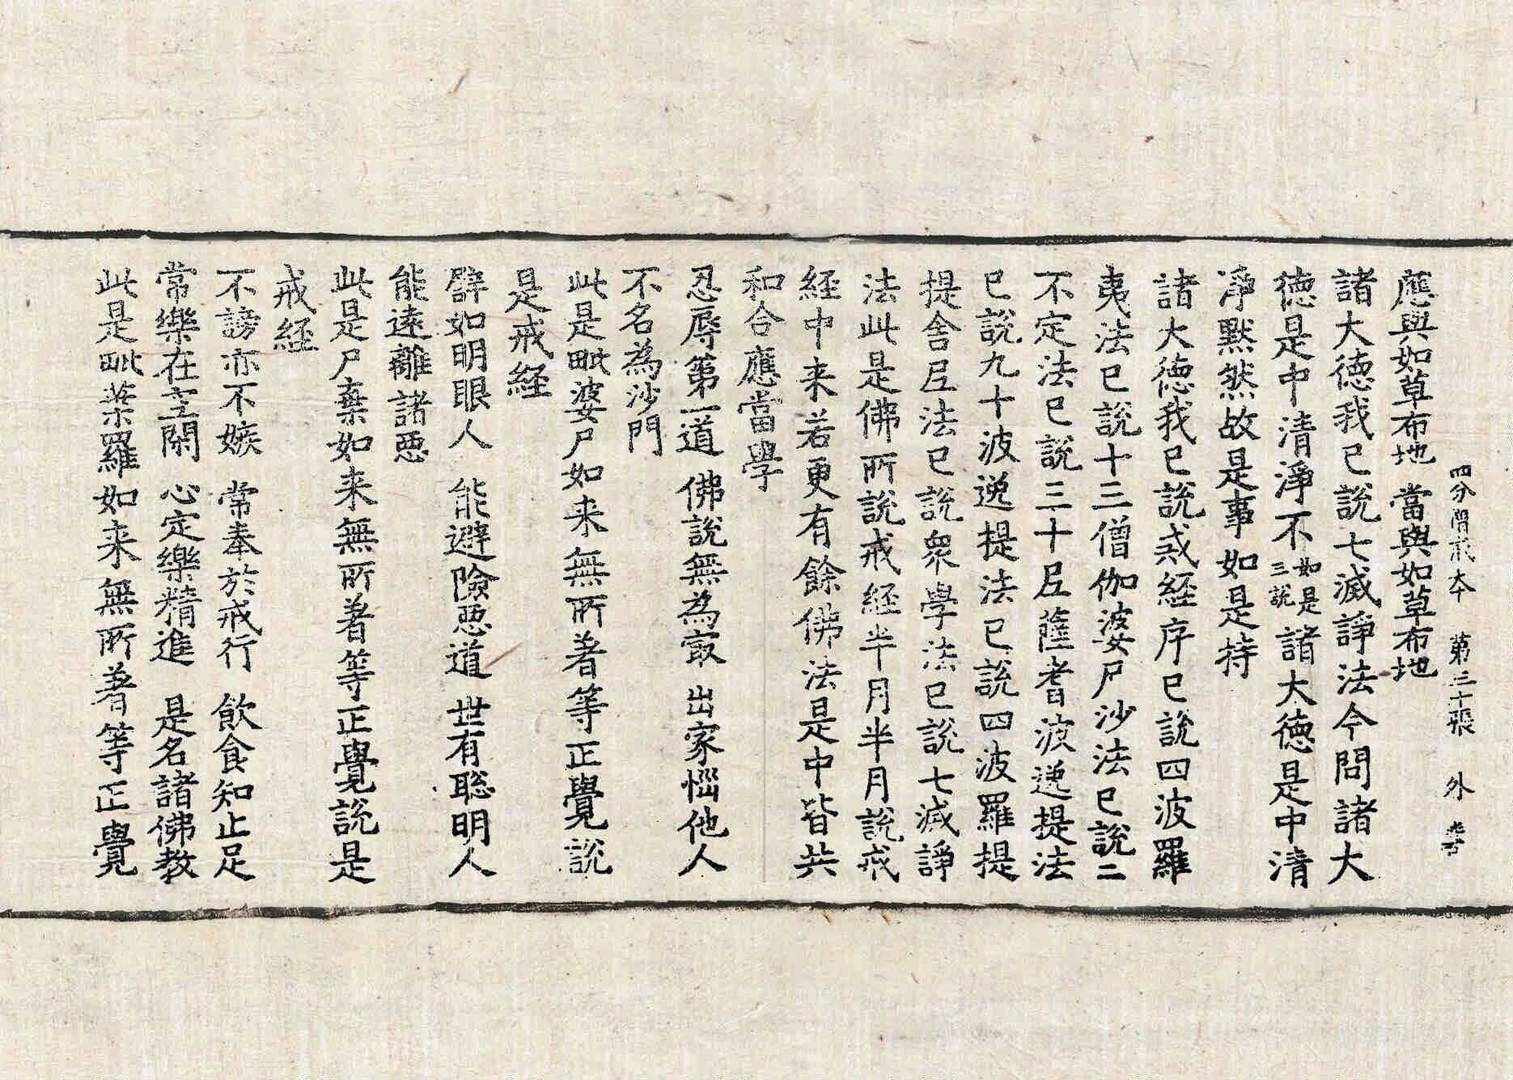 四分僧戒本 第三十張 外
應與如草布地 當與如草布地
諸大德我已說七滅諍法今問諸大
德是中清淨不如是三說諸大德是中清
淨默然故是事如是持
諸大德我已說戒經序已說四波羅
夷法已說十三僧伽婆尸沙法已說二
不定法已說三十尼薩耆波逸提法
已說九十波逸提法已說四波羅提
提舍尼法已說眾學法已說七滅諍
法此是佛所說戒經半月半月說戒
經中来若更有餘佛法是中皆共
和合應當學
忍辱第一道 佛說無為㝡 出家惱他人
不名為沙門
此是毗婆尸如来無所著等正覺說
是戒經
譬如明眼人 能避險惡道 世有聡明人
能遠離諸惡
此是尸棄如来無所著等正覺說是
戒經
不謗亦不嫉 常奉於戒行 飲食知止足
常樂在空閑 心定樂精進 是名諸佛教
此是毗葉羅如来無所著等正覺